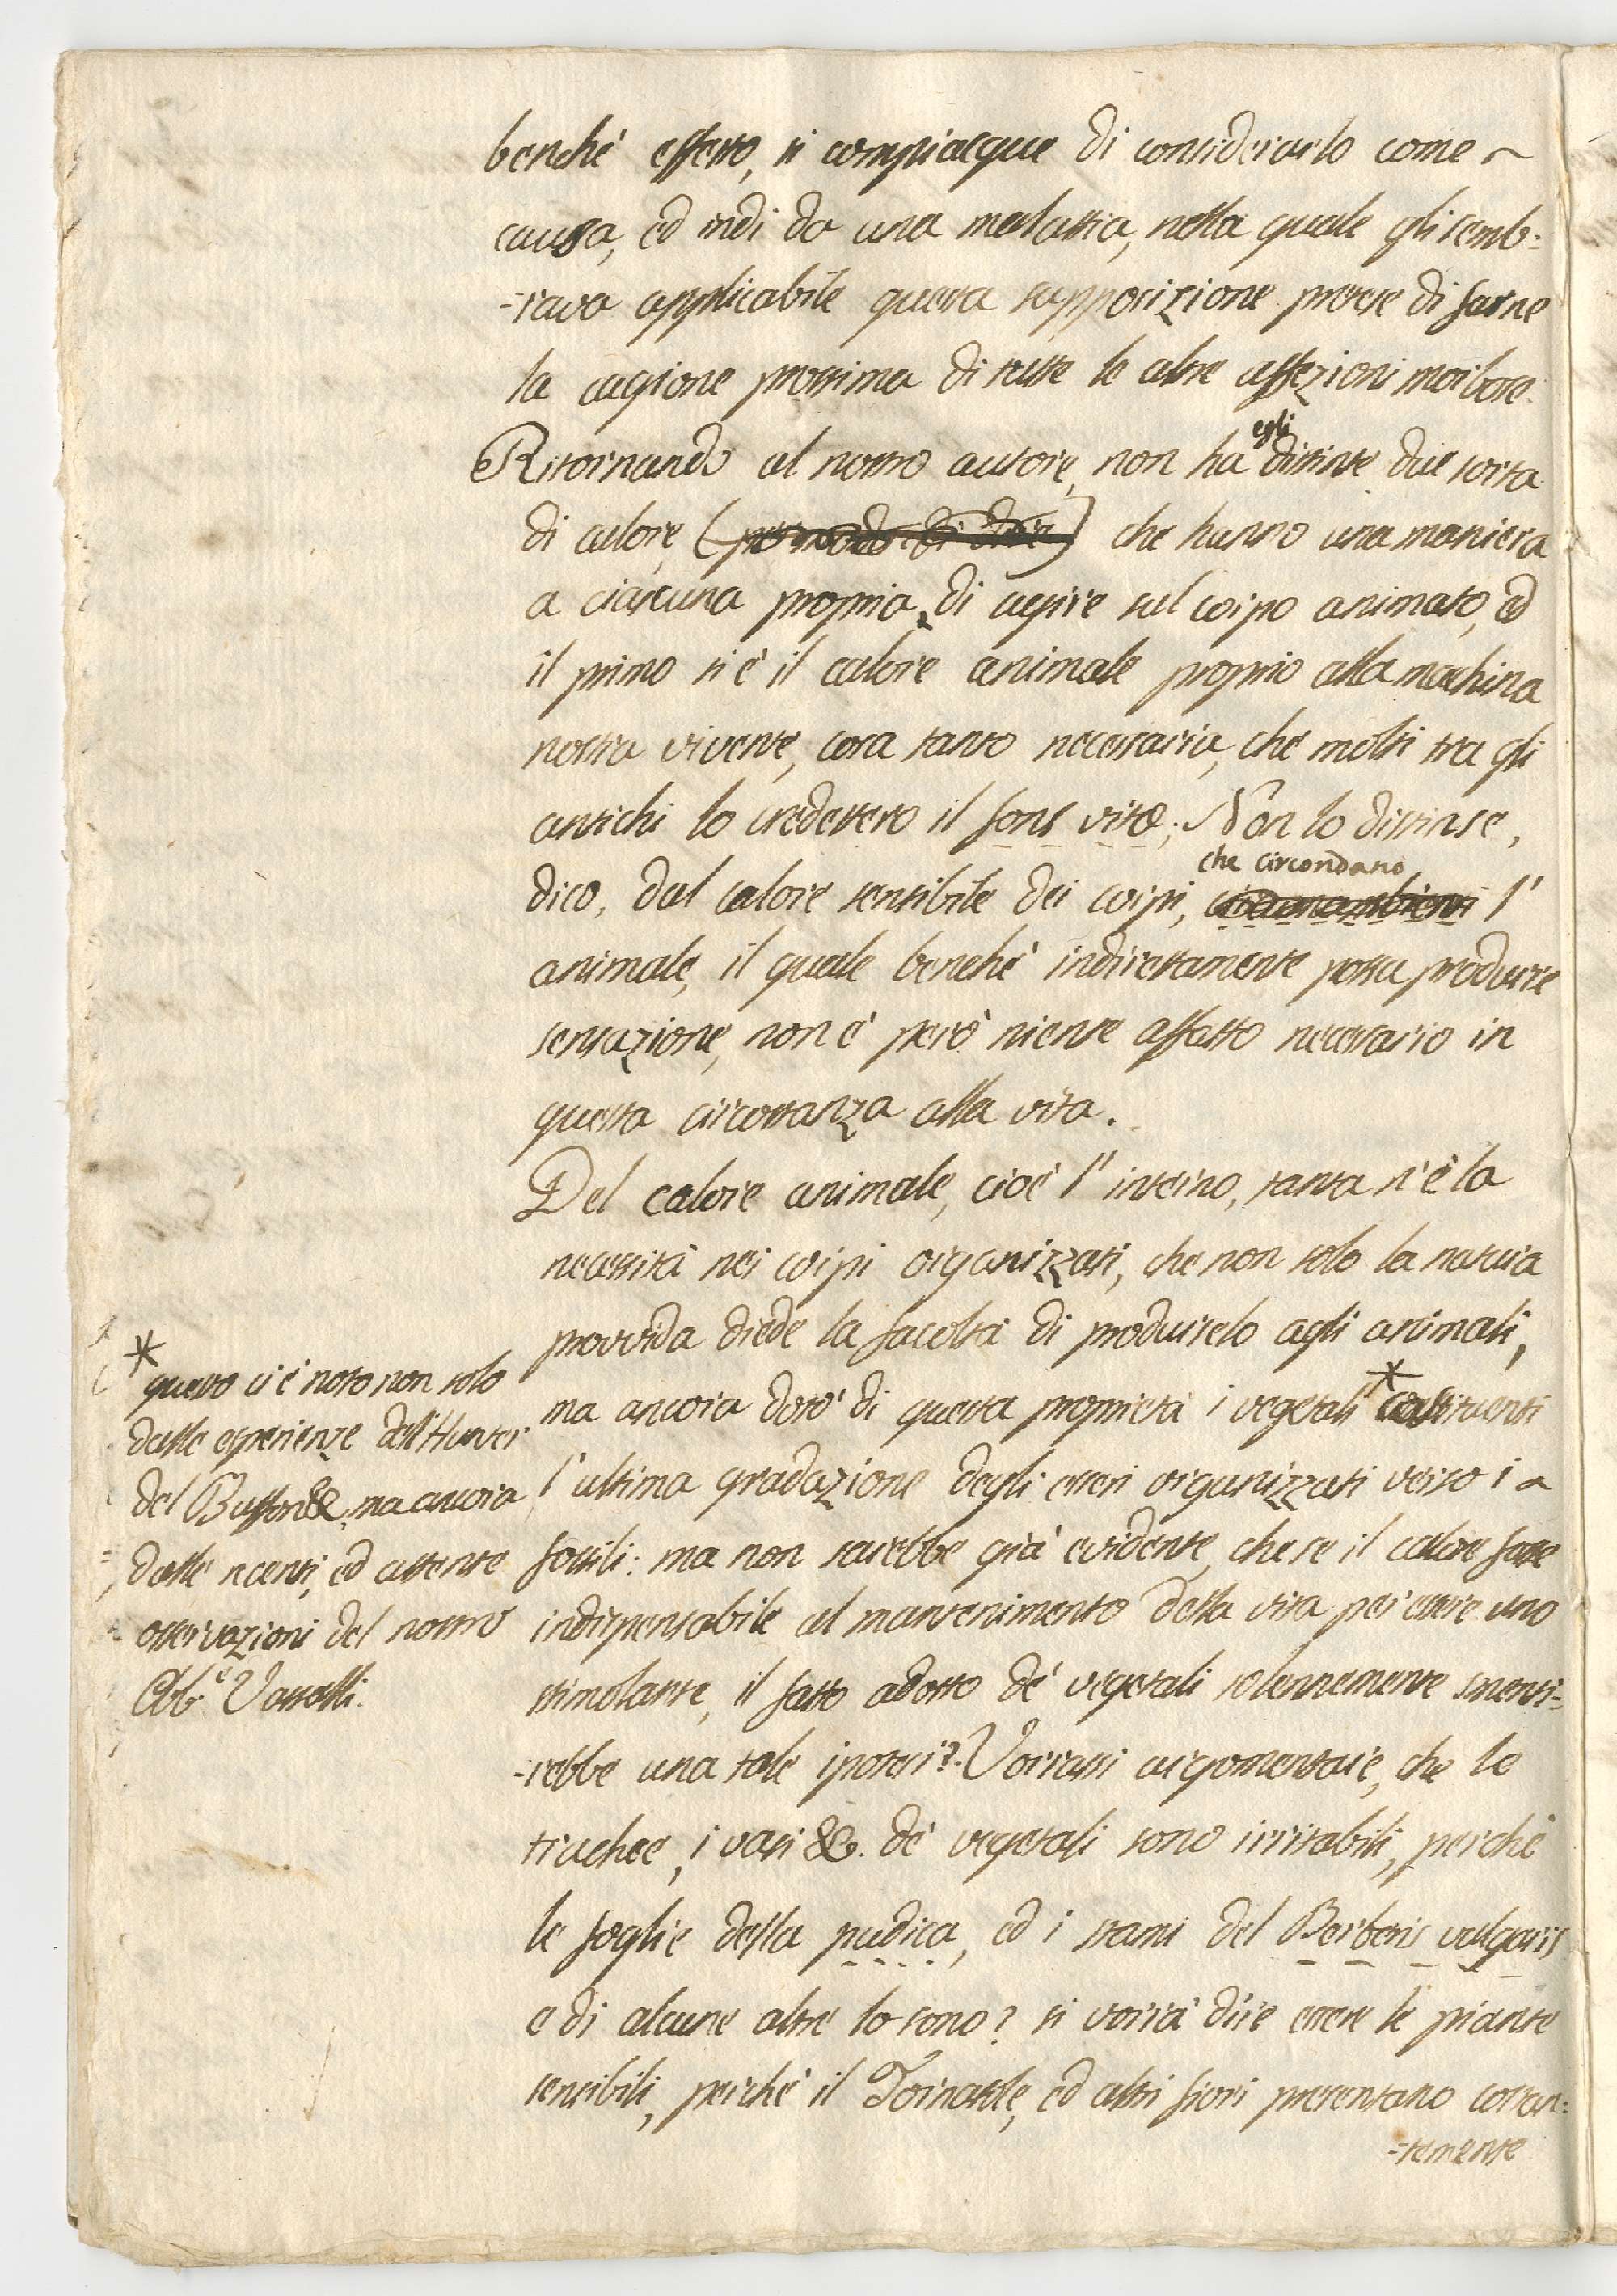 benchè effetto, si compiacque di considerarlo come ~
causa, ed indi da una malattia, nella quale gli semb-
-rava applicabile questa supposizione pretese di farne
la cagione prossima di tutte le altre affezioni morbose.
egli
Ritornando al nostro autore, non ha distinte due sorta
di calore, (per modo di dire) che hanno una maniera
a ciascuna propria di agire sul corpo animato, ed
il primo si è il calore animale proprio alla machina
nostra vivente, cosa tanto necessaria, che molti tra gli
antichi lo credettero il fons vitæ; Non lo distinse,
che circondano
dico, dal calore sensibile dei corpi, l'
animale, il quale benchè indirettamente possa produrre
sensazione, non è però niente affatto necessario in
questa circostanza alla vita.
Del calore animale, cioè l'interno, tanta si è la
necessità nei corpi organizzati, che non solo la natura
provvida diede la facoltà di produrselo agli animali,
ma ancora dotò di questa proprietà i vegetali * costituenti
l'ultima gradazione degli esseri organizzati verso i ~
fossili: ma non sarebbe già evidente, che se il calore fosse
indispensabile al mantenimento della vita per essere uno
stimolante, il fatto adotto de' vegetali solennemente smenti=
-rebbe una tale ipotesi? Vorrassi argomentare, che le
trachee, i vasi &c. de' vegetali sono irritabili, perchè
le foglie della pudica, ed i stami del Berberis vulgaris
e di alcune altre lo sono? si vorrà dire essere le piante
sensibili, perchè il Tornasole, ed altri fiori presentano costan=
=temente
*
questo ci è noto non solo
dalle esperienze dell'Hunter
del Buffon &c, ma ancora
dalle recenti, ed attente
osservazioni del nostro
Ab.e Vassalli.